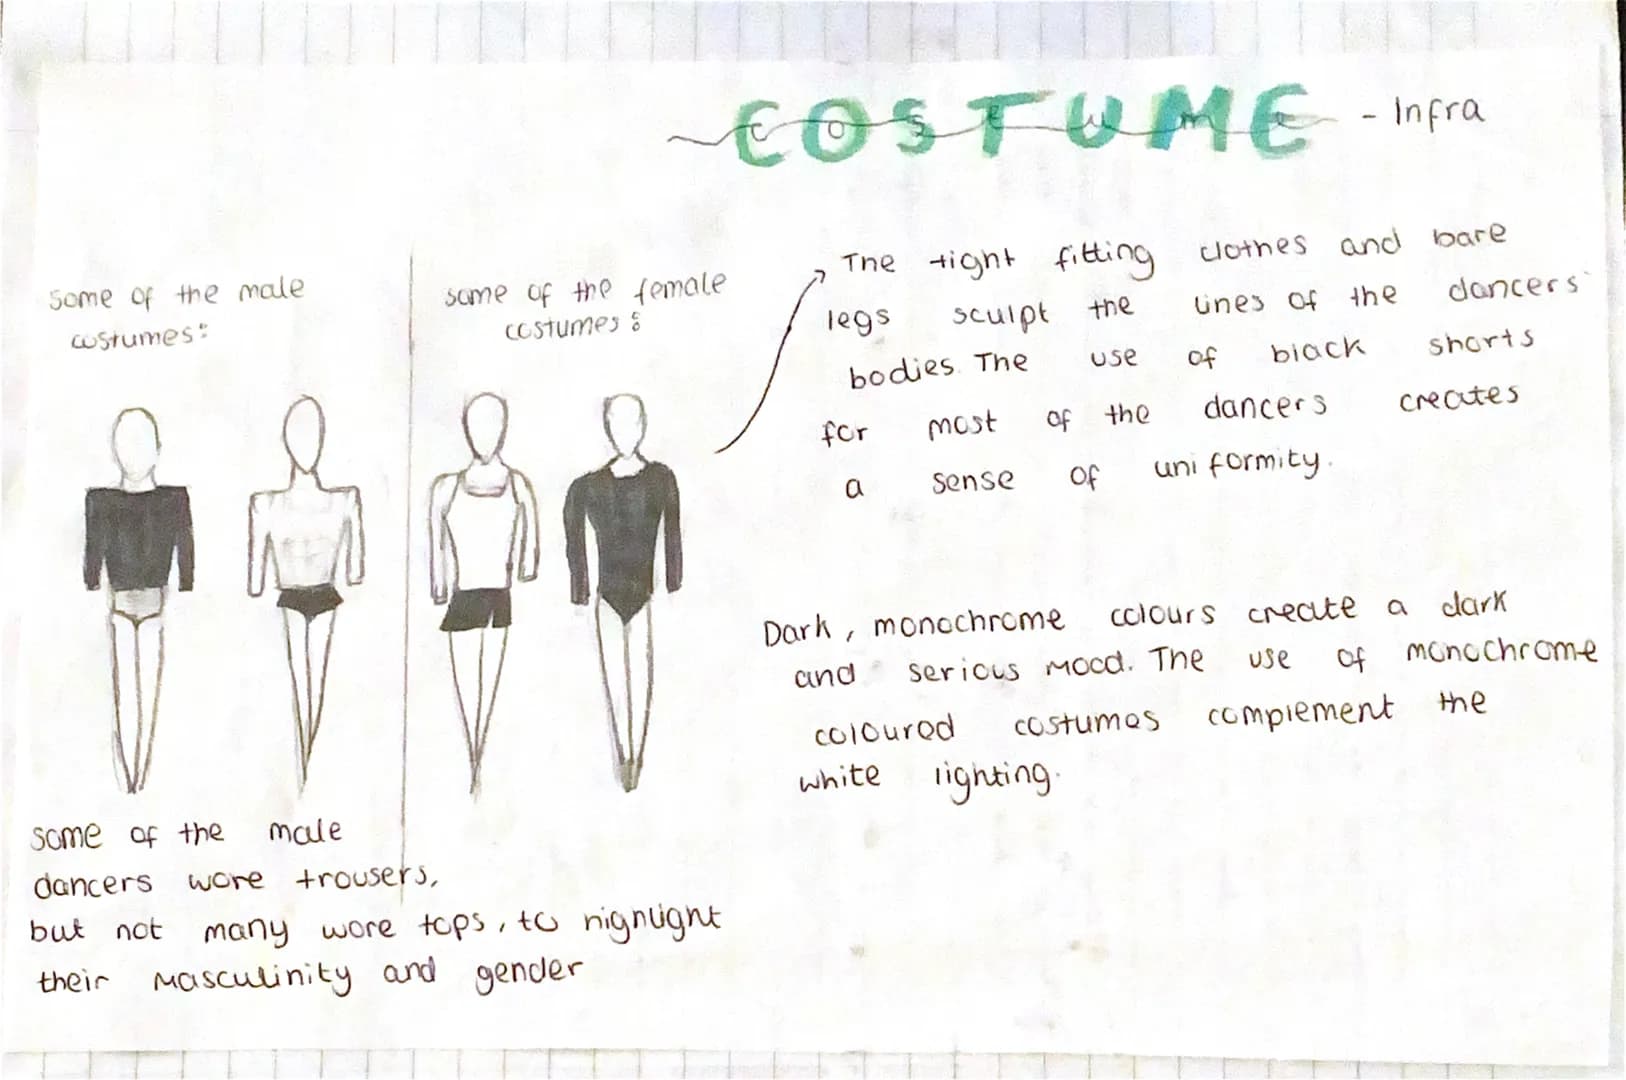 COSTUME - Infra
costume
Some of the male
costumes:
some of the female
costumes:
The tight fitting clothes and bare
legs sculpt the lines of the dancers'
bodies. The use of black shorts
for most of the dancers creates
a sense of uniformity.
Dark, monochrome colours create a dark
and serious mood. The use of monochrome
coloured costumes complement the
white lighting.
some of the male
dancers wore trousers,
but not many wore tops, to highlight
their masculinity and gender